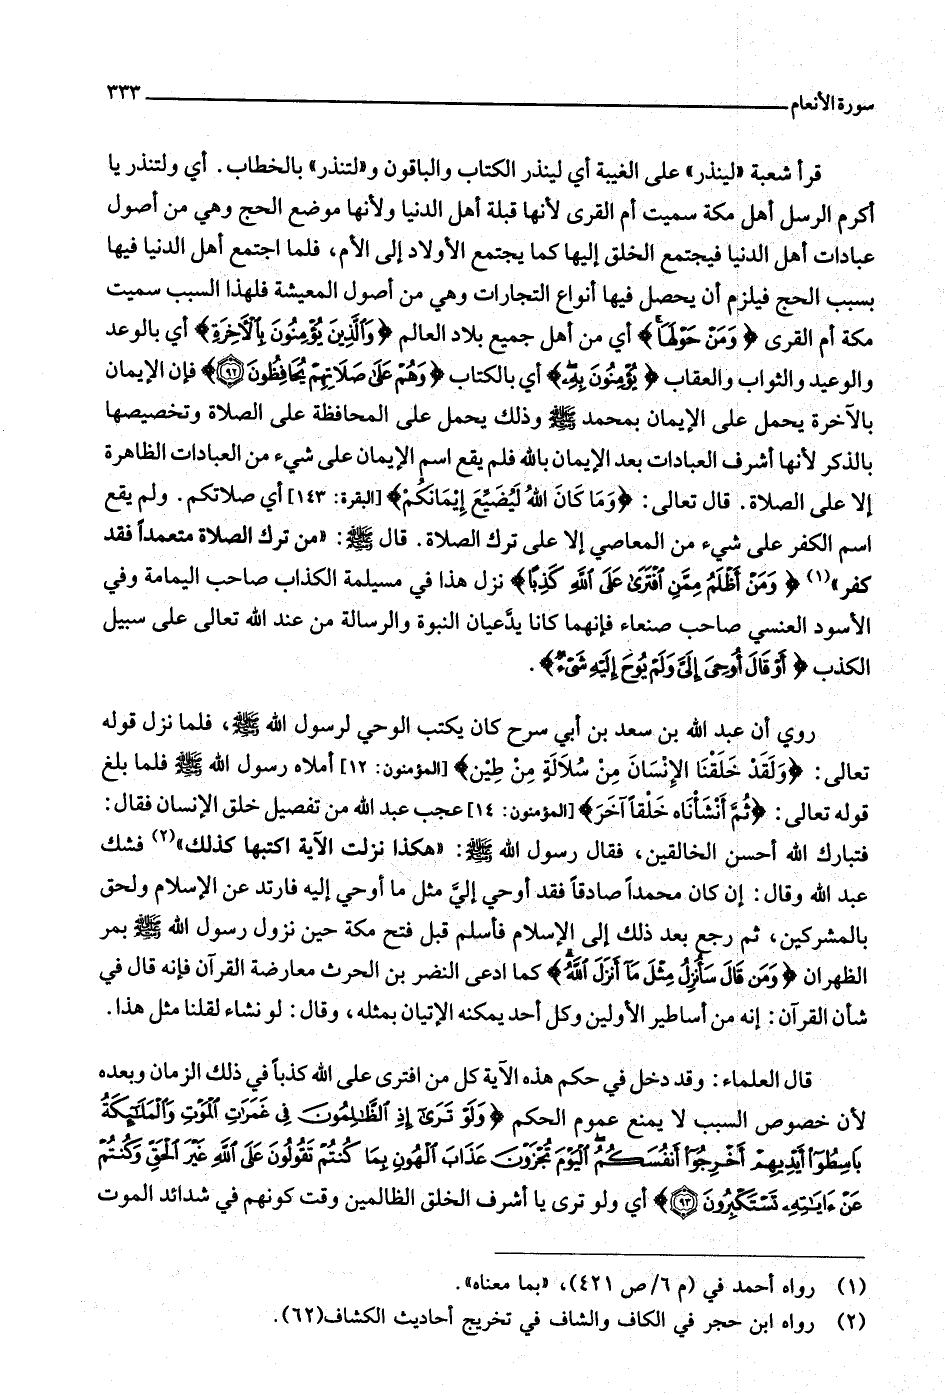 سورة الأنعام ٣٣٣
قرأ شعبة «لينذر» على الغيبة أي لينذر الكتاب والباقون و«لتنذر» بالخطاب. أي ولتنذر يا
أكرم الرسل أهل مكة سميت أم القرى لأنها قبلة أهل الدنيا ولأنها موضع الحج وهي من أصول
عبادات أهل الدنيا فيجتمع الخلق إليها كما يجتمع الأولاد إلى الأم، فلما اجتمع أهل الدنيا فيها
بسبب الحج فيلزم أن يحصل فيها أنواع التجارات وهي من أصول المعيشة فلهذا السبب سميت
مكة أم القرى ﴿وَمَنْ حَوْلَهَا﴾ أي من أهل جميع بلاد العالم ﴿وَٱلَّذِينَ يُؤْمِنُونَ بِٱلْآخِرَةِ﴾ أي بالوعد
والوعيد والثواب والعقاب ﴿يُؤْمِنُونَ بِهِۦ﴾ أي بالكتاب ﴿وَهُمْ عَلَىٰ صَلَاتِهِمْ يُحَافِظُونَ ٩٢﴾ فإن الإيمان
بالآخرة يحمل على الإيمان بمحمد ﷺ وذلك يحمل على المحافظة على الصلاة وتخصيصها
بالذكر لأنها أشرف العبادات بعد الإيمان بالله فلم يقع اسم الإيمان على شيء من العبادات الظاهرة
إلا على الصلاة. قال تعالى: ﴿وَمَا كَانَ اللهُ لَيُضَيِّعَ إِيْمَانَكُمْ﴾ [البقرة: ١٤٣] أي صلاتكم. ولم يقع
اسم الكفر على شيء من المعاصي إلا على ترك الصلاة. قال ﷺ: «من ترك الصلاة متعمداً فقد
كفر»(١) ﴿وَمَنْ أَظْلَمُ مِمَّنِ ٱفْتَرَىٰ عَلَى ٱللَّهِ كَذِبًا﴾ نزل هذا في مسيلمة الكذاب صاحب اليمامة وفي
الأسود العنسي صاحب صنعاء فإنهما كانا يدَّعيان النبوة والرسالة من عند الله تعالى على سبيل
الكذب ﴿أَوْ قَالَ أُوحِيَ إِلَيَّ وَلَمْ يُوحَ إِلَيْهِ شَيْءٌ﴾.
روي أن عبد الله بن سعد بن أبي سرح كان يكتب الوحي لرسول الله ﷺ، فلما نزل قوله
تعالى: ﴿وَلَقَدْ خَلَقْنَا الإِنْسَانَ مِنْ سُلَالَةٍ مِنْ طِيْن﴾ [المؤمنون: ١٢] أملاه رسول الله ﷺ فلما بلغ
قوله تعالى: ﴿ثُمَّ أَنْشَأْنَاه خَلْقاً آخَرَ﴾ [المؤمنون: ١٤] عجب عبد الله من تفصيل خلق الإنسان فقال:
فتبارك الله أحسن الخالقين، فقال رسول الله ﷺ: «هكذا نزلت الآية اكتبها كذلك»(٢) فشك
عبد الله وقال: إن كان محمداً صادقاً فقد أوحي إليَّ مثل ما أوحي إليه فارتد عن الإسلام ولحق
بالمشركين، ثم رجع بعد ذلك إلى الإسلام فأسلم قبل فتح مكة حين نزول رسول الله ﷺ بمر
الظهران ﴿وَمَن قَالَ سَأُنزِلُ مِثْلَ مَآ أَنزَلَ ٱللَّهُ﴾ كما ادعى النضر بن الحرث معارضة القرآن فإنه قال في
شأن القرآن: إنه من أساطير الأولين وكل أحد يمكنه الإتيان بمثله، وقال: لو نشاء لقلنا مثل هذا.
قال العلماء: وقد دخل في حكم هذه الآية كل من افترى على الله كذباً في ذلك الزمان وبعده
لأن خصوص السبب لا يمنع عموم الحكم ﴿وَلَوْ تَرَىٰٓ إِذِ ٱلظَّـٰلِمُونَ فِي غَمَرَٰتِ ٱلْمَوْتِ وَٱلْمَلَـٰٓئِكَةُ
بَاسِطُوٓا۟ أَيْدِيهِمْ أَخْرِجُوٓا۟ أَنفُسَكُمُ ٱلْيَوْمَ تُجْزَوْنَ عَذَابَ ٱلْهُونِ بِمَا كُنتُمْ تَقُولُونَ عَلَى ٱللَّهِ غَيْرَ ٱلْحَقِّ وَكُنتُمْ
عَنْ ءَايَـٰتِهِۦ تَسْتَكْبِرُونَ ٩٣﴾ أي ولو ترى يا أشرف الخلق الظالمين وقت كونهم في شدائد الموت
(١) رواه أحمد في (م ٦/ ص ٤٢١)، «بما معناه».
(٢) رواه ابن حجر في الكاف والشاف في تخريج أحاديث الكشاف(٦٢).